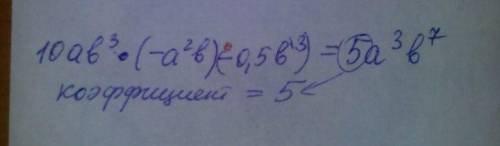 10ab³·(-a²b)(-0,5b³)=5a³b⁷
коэффициент = 5